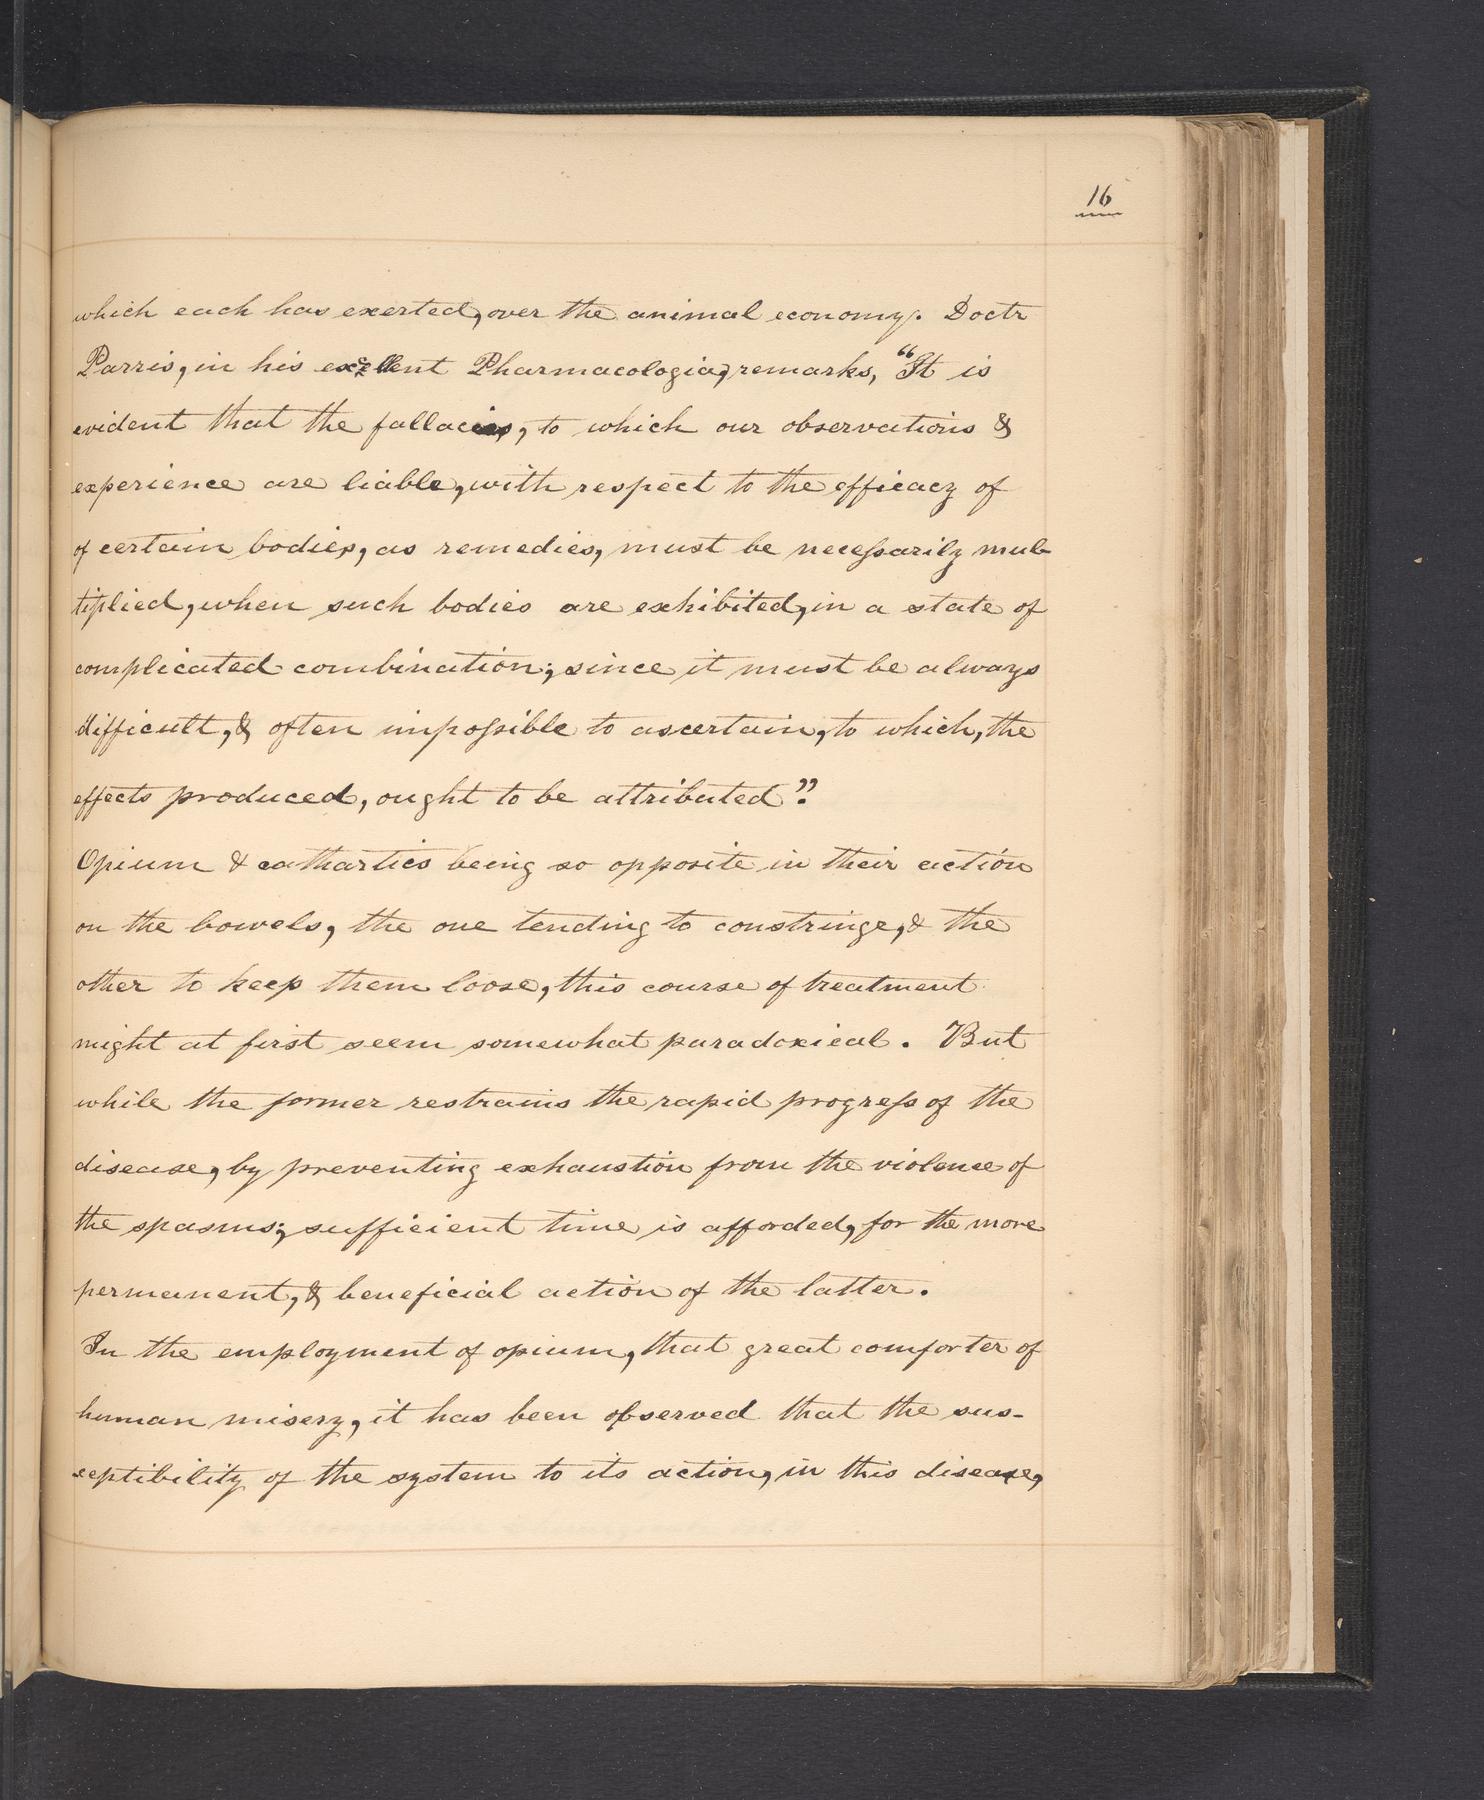 16
which each has exerted, over the animal economy. Doctr
Parris, in his excellent Pharmacologia, remarks, "It is
evident that the fallacies, to which our observations &
experience are liable, with respect to the efficacy of
of certain bodies, as remedies, must be necessarily mul-
tiplied, when such bodies are exhibited, in a state of
complicated combination; since it must be always
difficult, & often impossible to ascertain, to which, the
effects produced, ought to be attributed".
Opium & cathartics being so opposite in their action
on the bowels, the one tending to constringe, & the
other to keep them loose, this course of treatment
might at first seem somewhat paradoxical. But
while the former restrains the rapid progress of the
disease, by preventing exhaustion from the violence of
the spasms; sufficient time is afforded, for the more
permanent, & beneficial action of the latter.
In the employment of opium, that great comforter of
human misery, it has been observed that the sus-
ceptibility of the system to its action, in this disease,